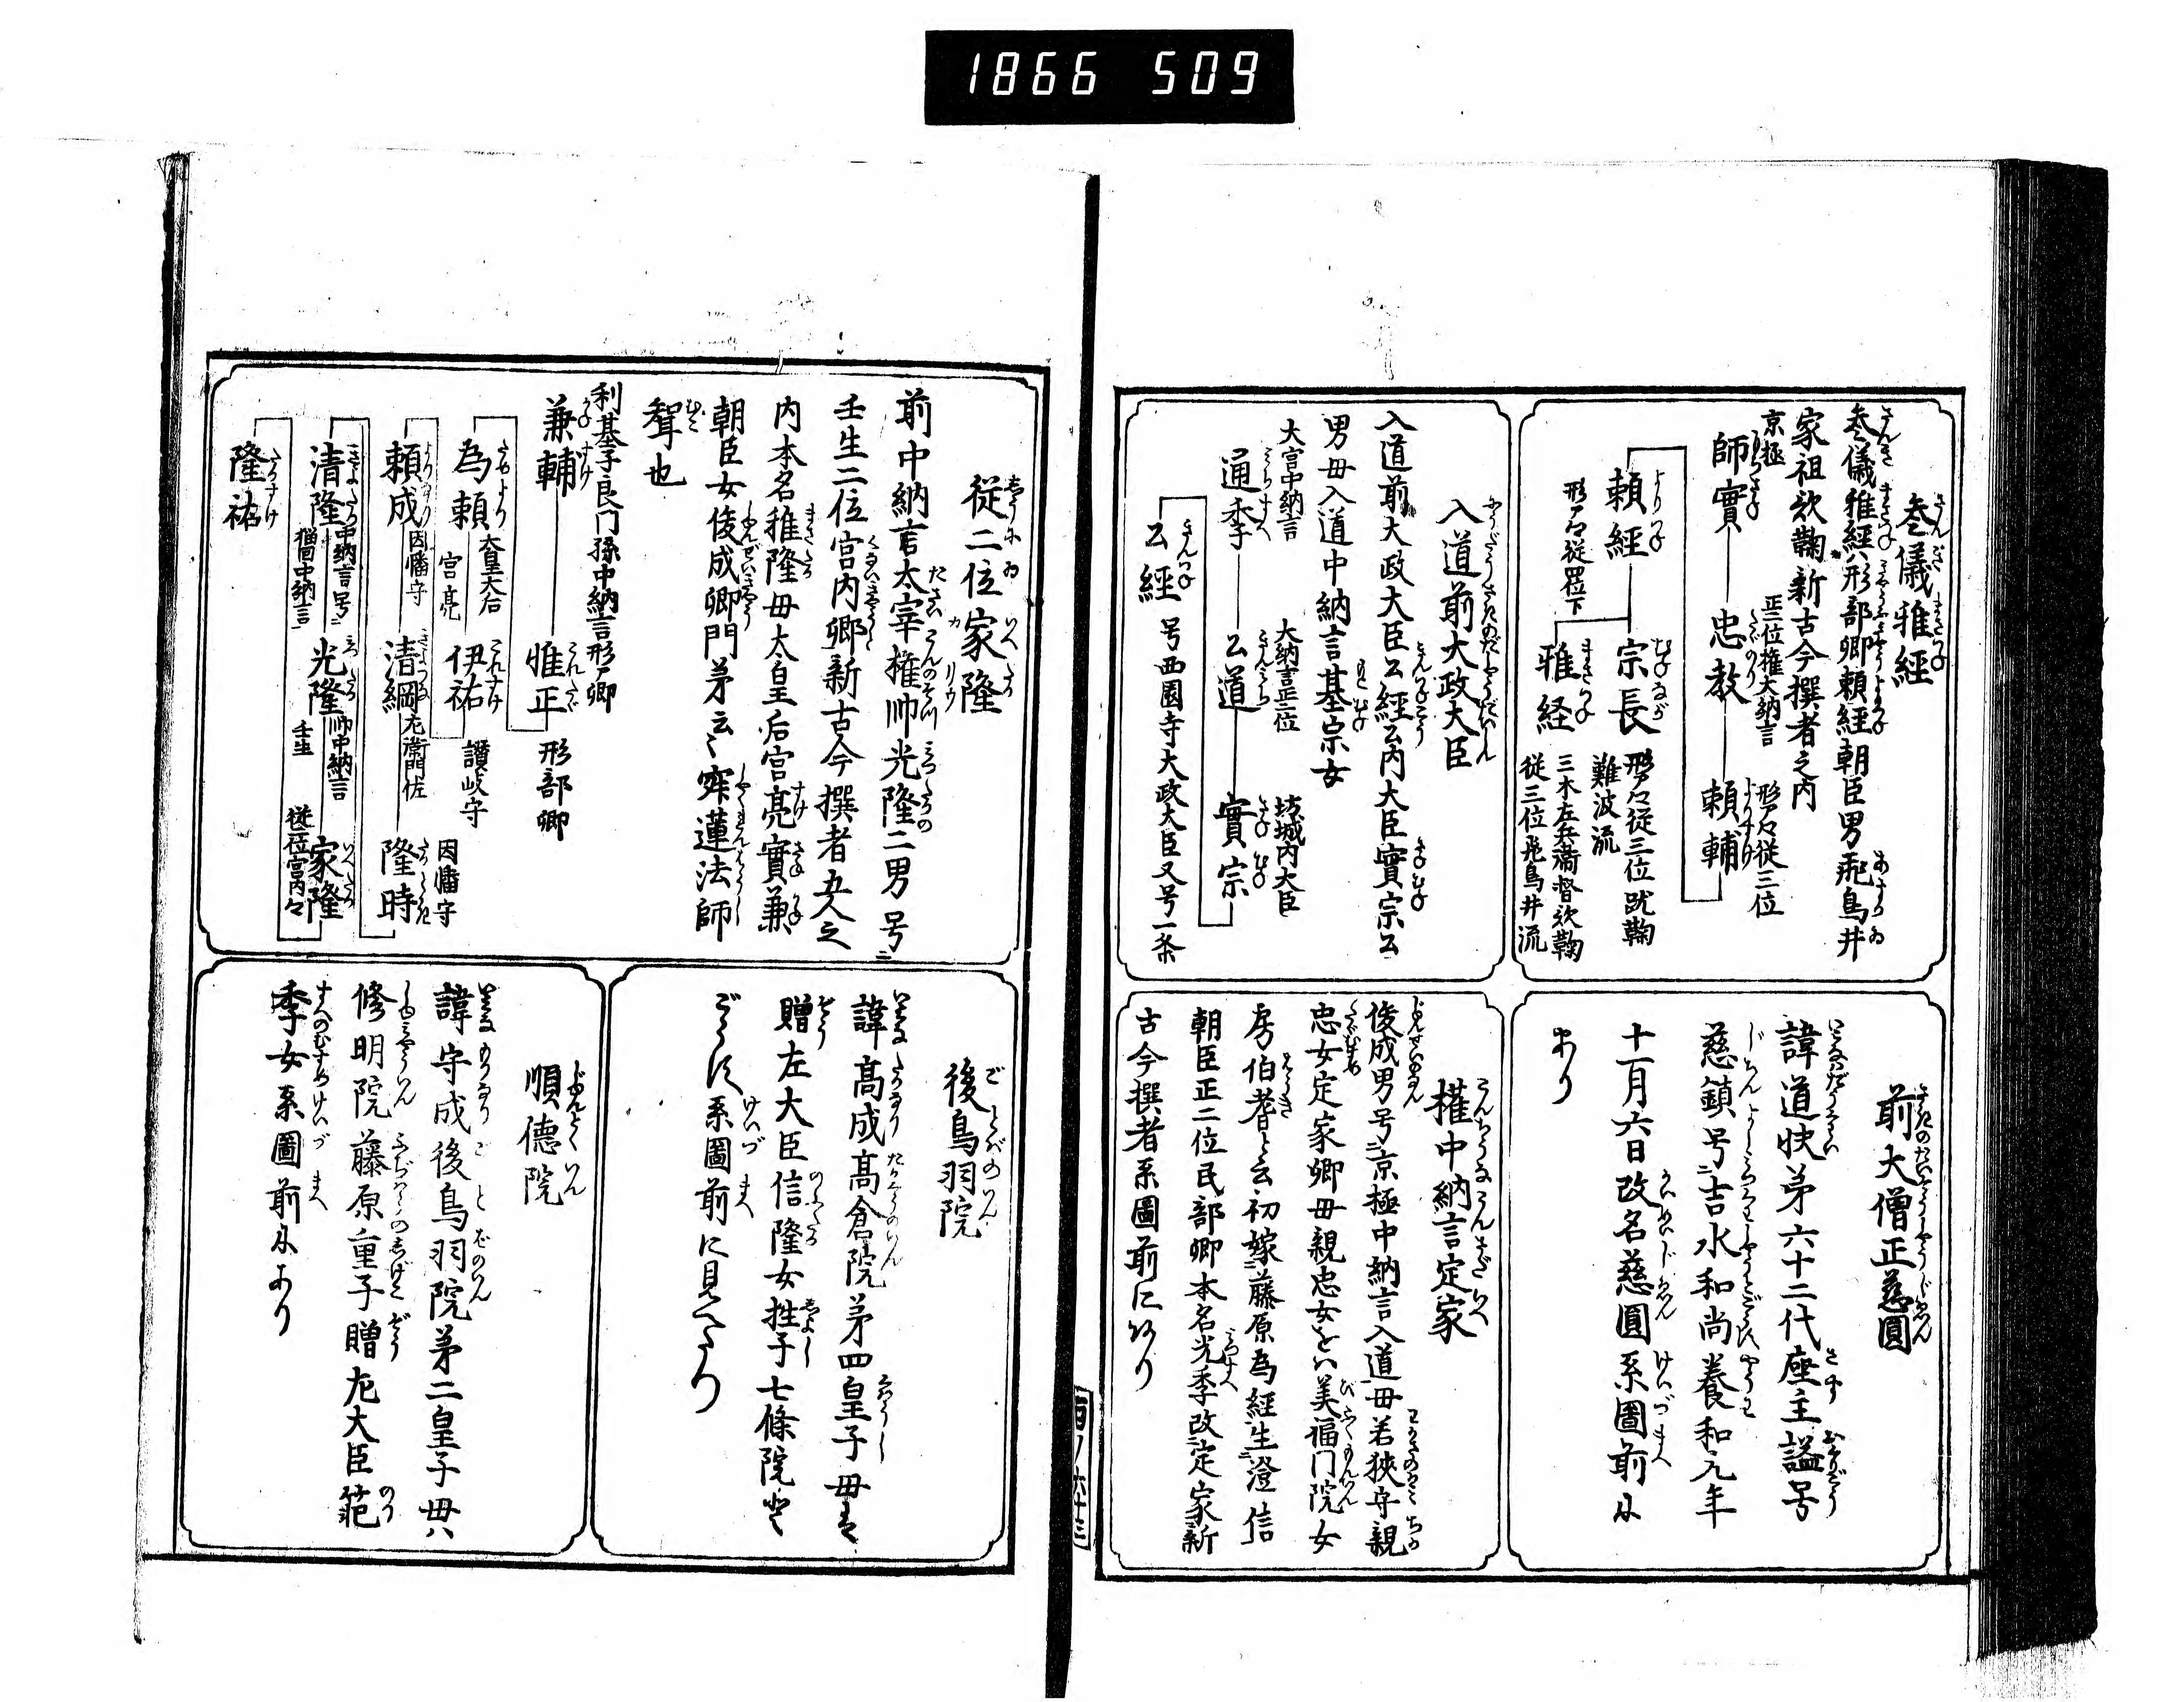 1866 509
参儀雅經
参儀雅經ハ形部卿頼經朝臣男飛鳥井
家祖欤鞠新古今撰者之内
京極
師實
忠教
正二位権大納言
頼輔
形ア々従三位
頼經
形ア々従四位下
宗長
形ア々従三位蹴鞠
難波流
雅経
三木左兵衞督欤鞠
従三位飛鳥井流
入道前大政大臣
入道前大政大臣公經公内大臣實宗公
男毋入道中納言基宗女
大宮中納言
通季
大納言正二位
公道
坊城内大臣
實宗
公經
号西園寺大政大臣又号一条
前大僧正慈圓
諱道快苐六十二代座主謚号
慈鎮号吉水和尚養和元年
十一月六日改名慈圓系圖前に
あり
權中納言定家
俊成男号京極中納言入道毋若狹守親
忠女定家卿毋親忠女をハ美福门院女
房伯耆と云初嫁藤原為經生澄信
朝臣正二位民部卿本名光季改定家新
古今撰者系圖前にあり
百ノ六十三
従二位家隆
前中納言太宰権帅光隆二男号
壬生二位宮内卿新古今撰者五人之
内本名雅隆毋太皇后宮亮實兼
朝臣女俊成卿門苐云々寂蓮法師
聟也
利基子良门孫中納言形ア卿
兼輔
雅正
形部卿
為頼
大皇大后
宮亮
伊祐
讃岐守
頼成
因幡守
清綱
左衞門佐
隆時
因幡守
清隆
中納言号
猫間中納言
光隆
帅中納言
壬生
家隆
従二位宮内々
隆祐
後鳥羽院
諱髙成髙倉院苐四皇子毋は
贈左大臣信隆女殖子七條院と
ごうす系圖前に見へたり
順德院
諱守成後鳥羽院苐二皇子毋ハ
修明院藤原重子贈左大臣範
季女系圖前にあり